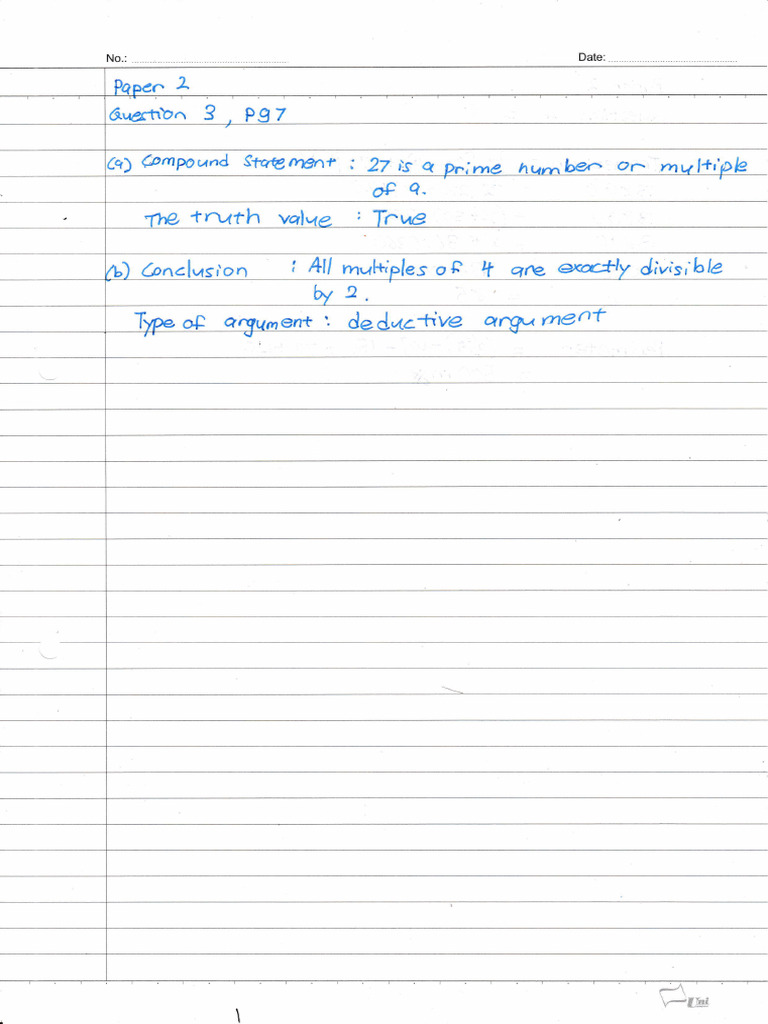 No.:
Date:
Paper 2
Question 3, P97
(a) Compound Statement : 27 is a prime number or multiple
of 9.
The truth value : True
(b) Conclusion : All multiples of 4 are exactly divisible
by 2.
Type of argument : deductive argument
Uni